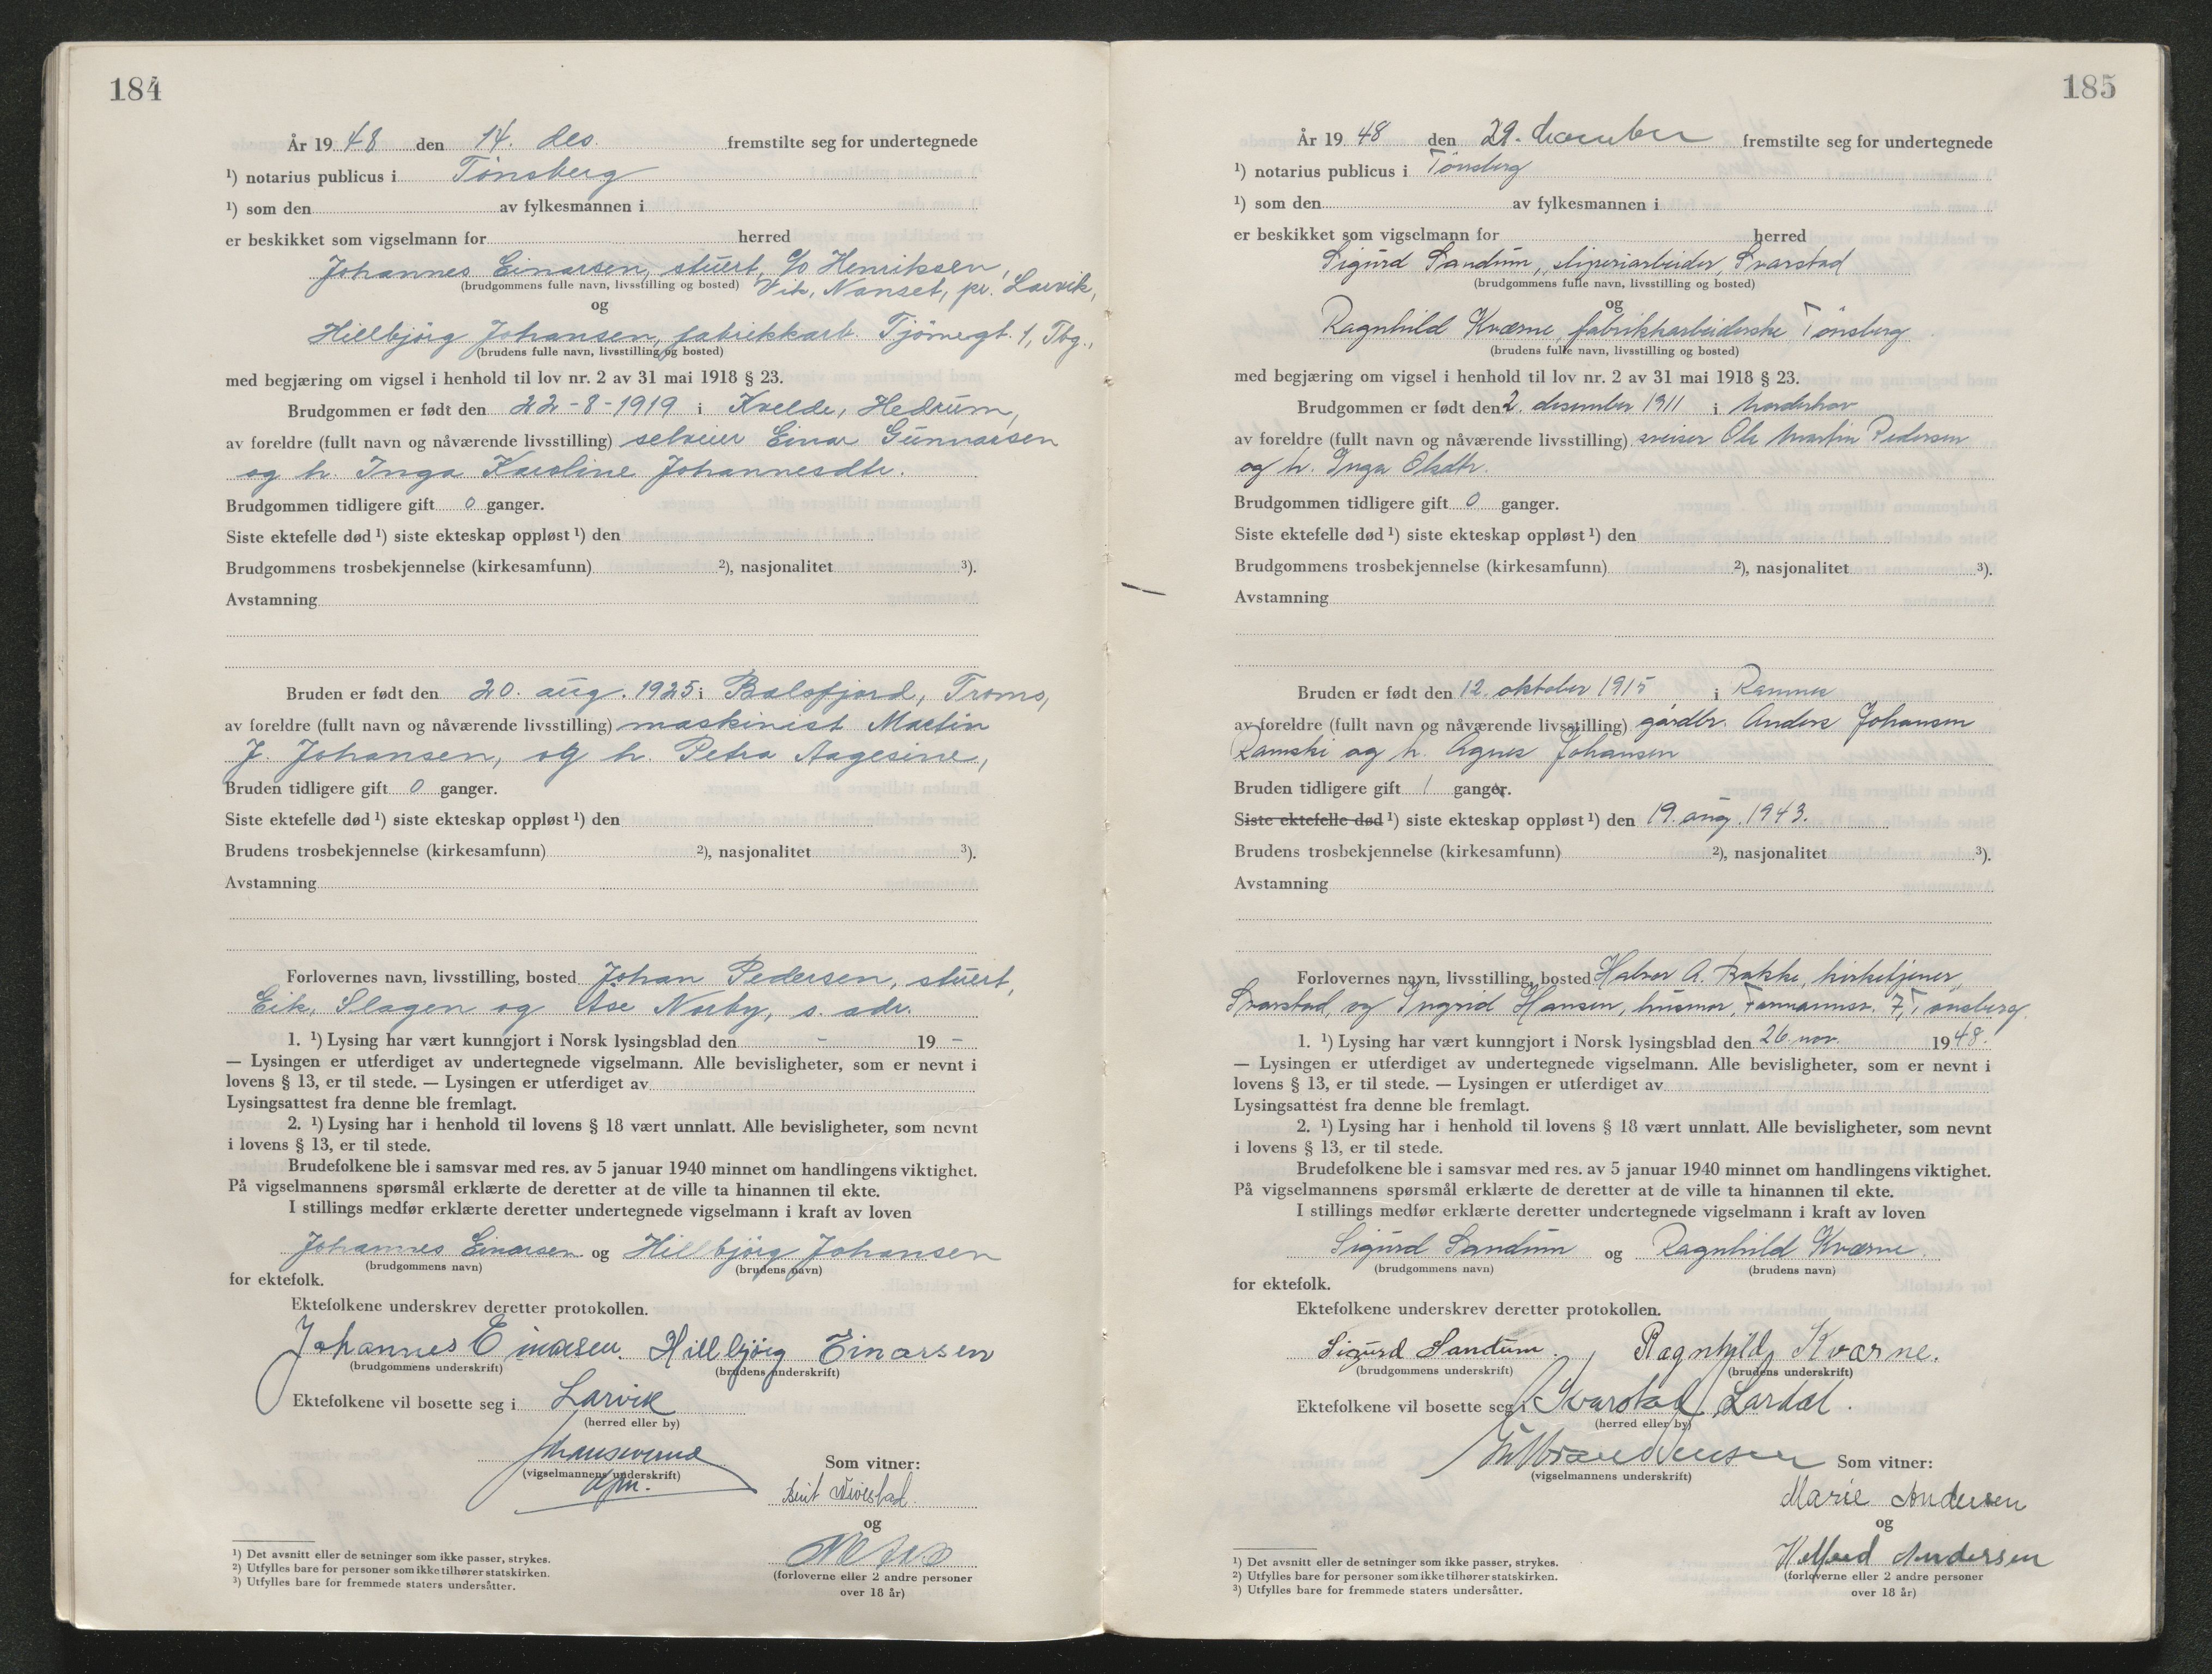 184
År 1948 den 14. des. fremstilte seg for undertegnede
¹) notarius publicus i Tönsberg
¹) som den av fylkesmannen i
er beskikket som vigselmann for herred
Johannes Einarsen, stuert, c/o Henriksen,
(brudgommens fulle navn, livsstilling og bosted) Vik, Nanset, pr. Larvik,
og
Hillbjörg Johansen, fabrikkarb. Tjömegt. 1, Tbg.,
(brudens fulle navn, livsstilling og bosted)
med begjæring om vigsel i henhold til lov nr. 2 av 31 mai 1918 § 23.
Brudgommen er født den 22-8-1919 i Kvelde, Hedrum,
av foreldre (fullt navn og nåværende livsstilling) selveier Einar Gunnarsen
og h. Inga Karoline Johannesdtr.
Brudgommen tidligere gift 0 ganger.
Siste ektefelle død ¹) siste ekteskap oppløst ¹) den
Brudgommens trosbekjennelse (kirkesamfunn) ²), nasjonalitet ³).
Avstamning
Bruden er født den 20. aug. 1925 i Balsfjord, Troms,
av foreldre (fullt navn og nåværende livsstilling) maskinist Martin
J. Johansen, og h. Petra Aagesine,
Bruden tidligere gift 0 ganger.
Siste ektefelle død ¹) siste ekteskap oppløst ¹) den
Brudens trosbekjennelse (kirkesamfunn) ²), nasjonalitet ³).
Avstamning
Forlovernes navn, livsstilling, bosted Johan Pedersen, stuert,
Eik, Slagen og Åse Norby, s. adr.
1. ¹) Lysing har vært kunngjort i Norsk lysingsblad den - 19 -
— Lysingen er utferdiget av undertegnede vigselmann. Alle bevisligheter, som er nevnt i
lovens § 13, er til stede. — Lysingen er utferdiget av
Lysingsattest fra denne ble fremlagt.
2. ¹) Lysing har i henhold til lovens § 18 vært unnlatt. Alle bevisligheter, som nevnt
i lovens § 13, er til stede.
Brudefolkene ble i samsvar med res. av 5 januar 1940 minnet om handlingens viktighet.
På vigselmannens spørsmål erklærte de deretter at de ville ta hinannen til ekte.
I stillings medfør erklærte deretter undertegnede vigselmann i kraft av loven
Johannes Einarsen og Hillbjörg Johansen
(brudgommens navn) (brudens navn)
for ektefolk.
Ektefolkene underskrev deretter protokollen.
Johannes Einarsen. Hillbjörg Einarsen
(brudgommens underskrift) (brudens underskrift)
Ektefolkene vil bosette seg i Larvik
(herred eller by)
(vigselmannens underskrift)
Som vitner:
og
(forloverne eller 2 andre personer
over 18 år)
¹) Det avsnitt eller de setninger som ikke passer, strykes.
²) Utfylles bare for personer som ikke tilhører statskirken.
³) Utfylles bare for fremmede staters undersåtter.
185
År 1948 den 29. desember fremstilte seg for undertegnede
¹) notarius publicus i Tönsberg
¹) som den av fylkesmannen i
er beskikket som vigselmann for herred
Sigurd Sandum, sliperiarbeider, Svarstad
(brudgommens fulle navn, livsstilling og bosted)
og
Ragnhild Kværne, fabrikkarbeiderske Tönsberg
(brudens fulle navn, livsstilling og bosted)
med begjæring om vigsel i henhold til lov nr. 2 av 31 mai 1918 § 23.
Brudgommen er født den 2. desember 1911 i Norderhov
av foreldre (fullt navn og nåværende livsstilling) sveiser Ole Martin Pedersen
og h. Inga Olsdtr.
Brudgommen tidligere gift 0 ganger.
Siste ektefelle død ¹) siste ekteskap oppløst ¹) den
Brudgommens trosbekjennelse (kirkesamfunn) ²), nasjonalitet ³).
Avstamning
Bruden er født den 12. oktober 1915 i Ramnes
av foreldre (fullt navn og nåværende livsstilling) gårdbr. Anders Johansen
Ramski og h. Agnes Johansen
Bruden tidligere gift 1 ganger.
Siste ektefelle død ¹) siste ekteskap oppløst ¹) den 19. aug. 1943.
Brudens trosbekjennelse (kirkesamfunn) ²), nasjonalitet ³).
Avstamning
Forlovernes navn, livsstilling, bosted Halvor A. Bakke, kirketjener,
Svarstad, og Ingrid Hansen, husmor, Farmannsv. 7, Tönsberg.
1. ¹) Lysing har vært kunngjort i Norsk lysingsblad den 26. nov. 1948.
— Lysingen er utferdiget av undertegnede vigselmann. Alle bevisligheter, som er nevnt i
lovens § 13, er til stede. — Lysingen er utferdiget av
Lysingsattest fra denne ble fremlagt.
2. ¹) Lysing har i henhold til lovens § 18 vært unnlatt. Alle bevisligheter, som nevnt
i lovens § 13, er til stede.
Brudefolkene ble i samsvar med res. av 5 januar 1940 minnet om handlingens viktighet.
På vigselmannens spørsmål erklærte de deretter at de ville ta hinannen til ekte.
I stillings medfør erklærte deretter undertegnede vigselmann i kraft av loven
Sigurd Sandum og Ragnhild Kværne.
(brudgommens navn) (brudens navn)
for ektefolk.
Ektefolkene underskrev deretter protokollen.
Sigurd Sandum. Ragnhild Kværne.
(brudgommens underskrift) (brudens underskrift)
Ektefolkene vil bosette seg i Svarstad, Lardal.
(herred eller by)
(vigselmannens underskrift)
Som vitner:
Marie Andersen
og
Andersen
(forloverne eller 2 andre personer
over 18 år)
¹) Det avsnitt eller de setninger som ikke passer, strykes.
²) Utfylles bare for personer som ikke tilhører statskirken.
³) Utfylles bare for fremmede staters undersåtter.